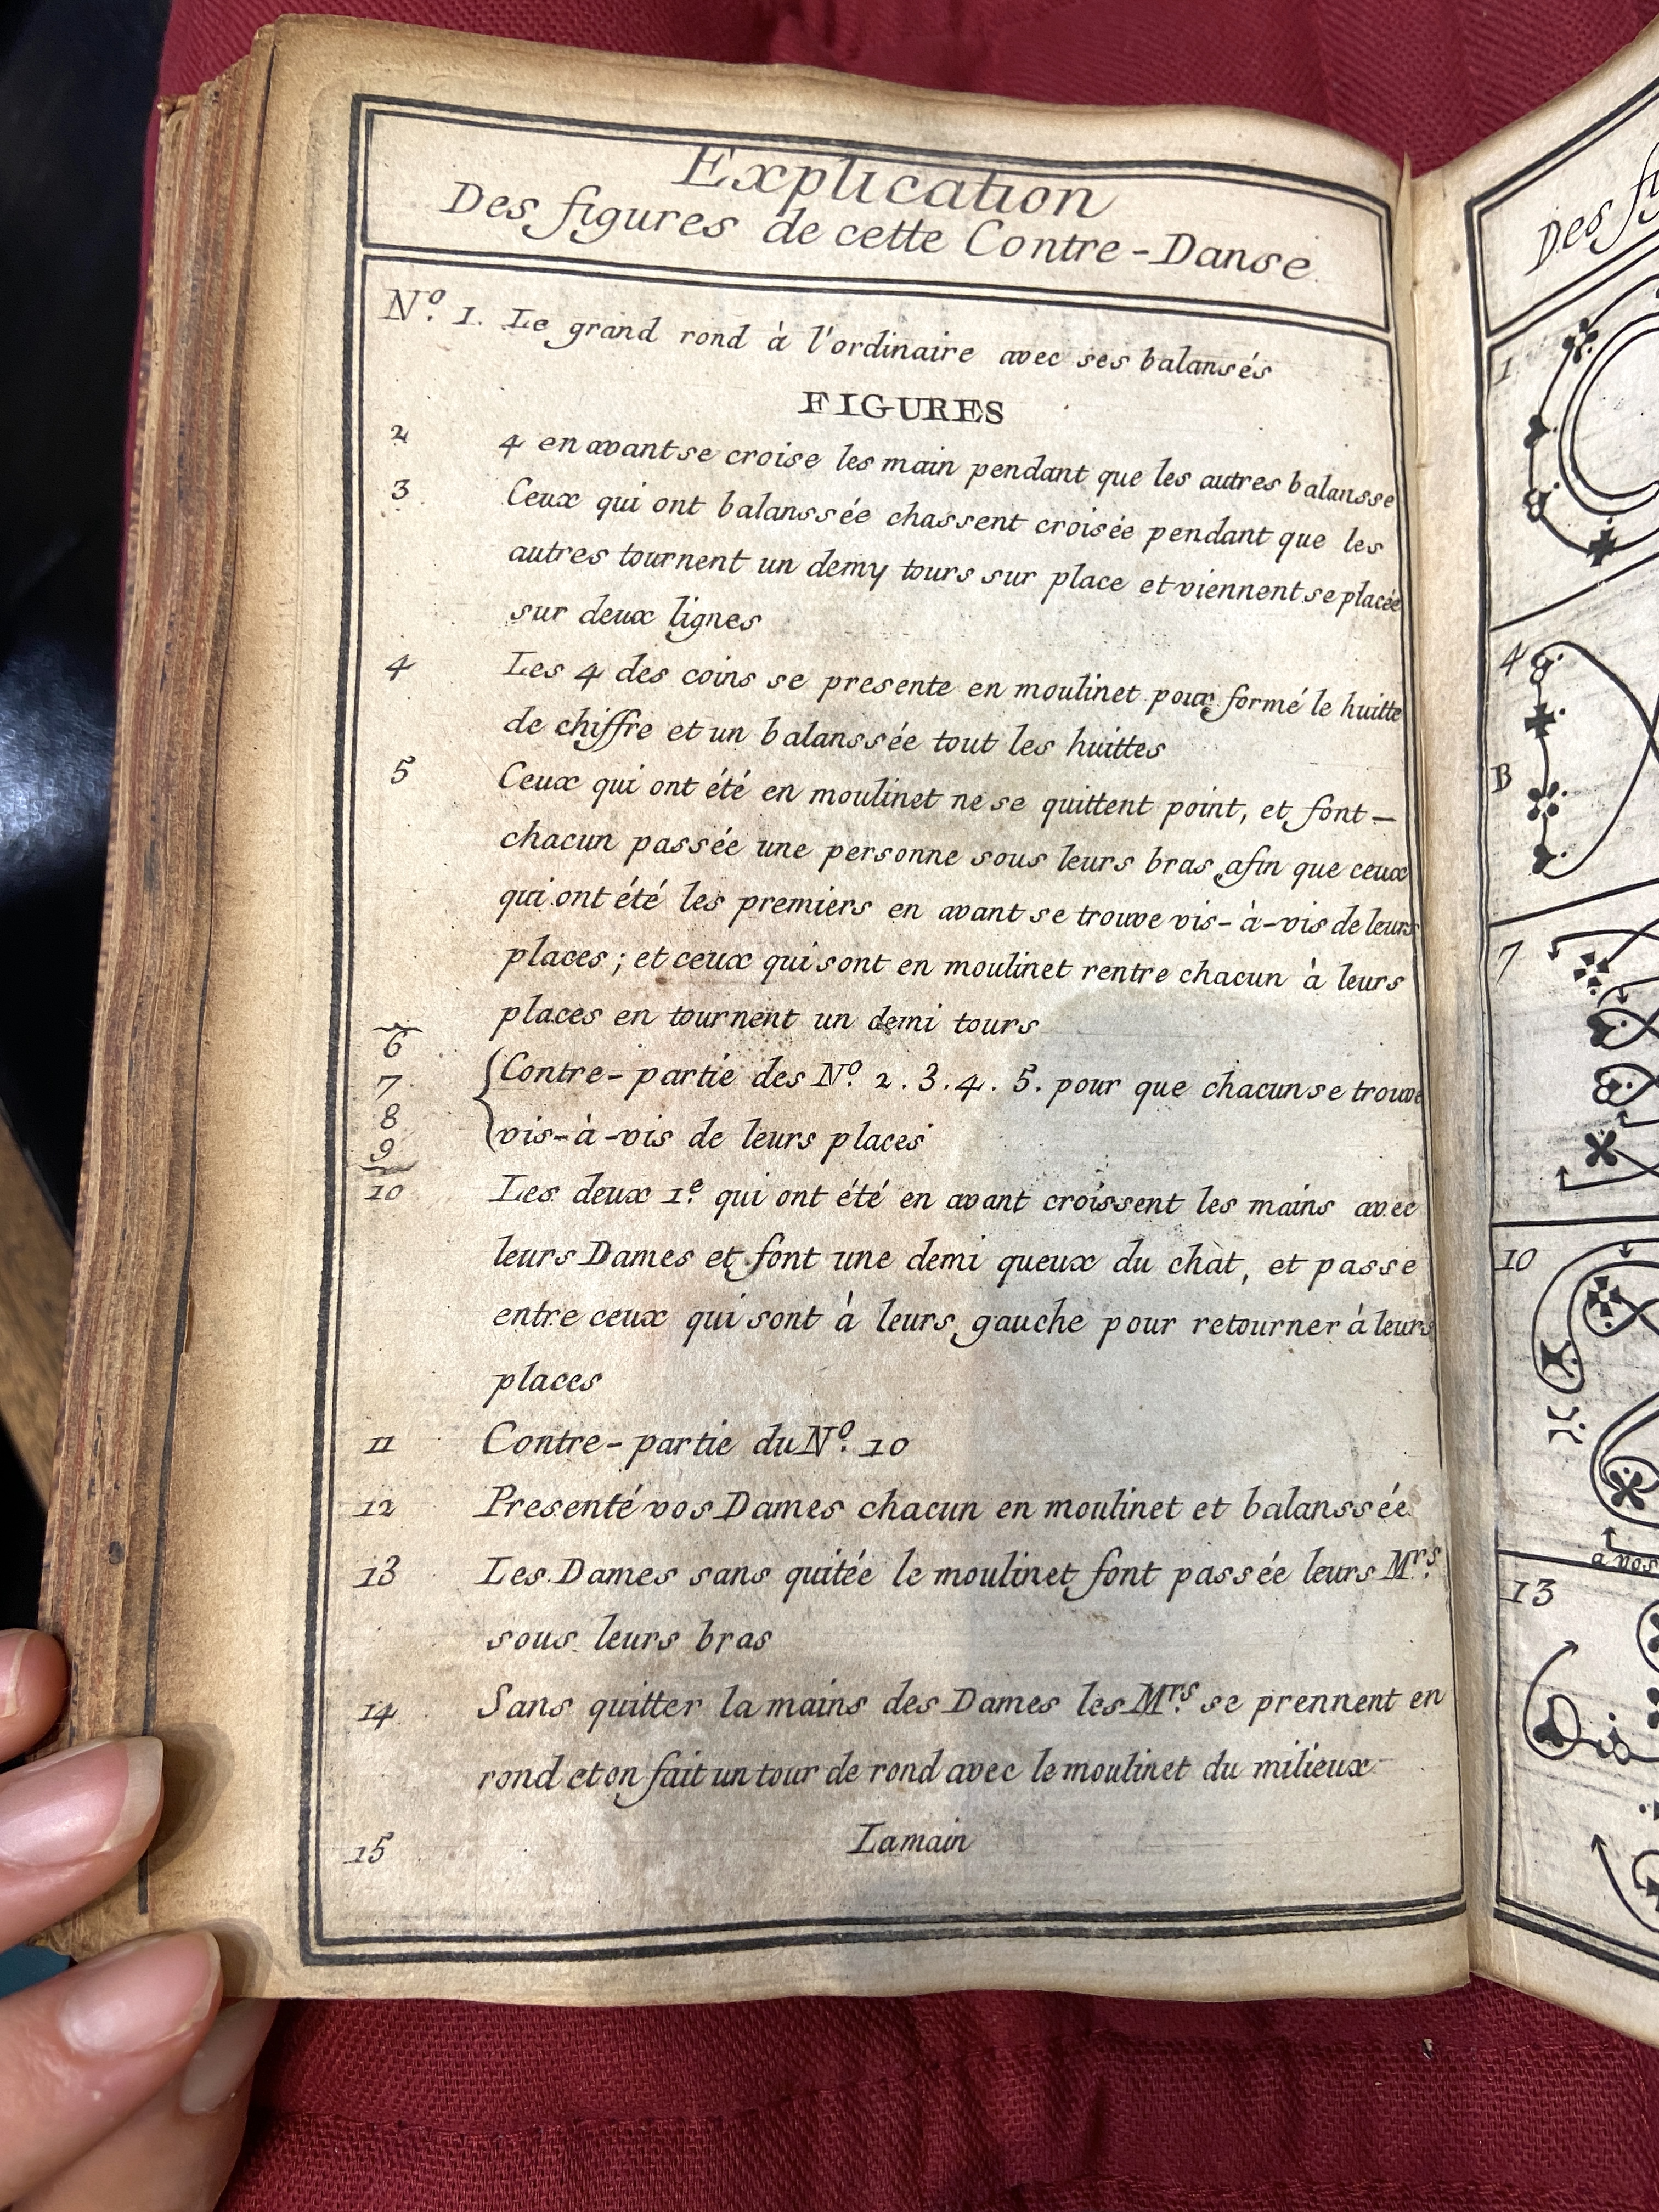 Explication
Des figures de cette Contre-Danse
Nº. 1. Le grand rond à l'ordinaire avec ses balansés
FIGURES
2 4 en avant se croise les main pendant que les autres balansse
3 Ceux qui ont balanssée chassent croisée pendant que les
autres tournent un demy tours sur place et viennent se placée
sur deux lignes
4 Les 4 des coins se presente en moulinet pour formé le huitte
de chiffre et un balanssée tout les huittes
5 Ceux qui ont été en moulinet ne se quittent point, et font -
chacun passée une personne sous leurs bras afin que ceux
qui ont été les premiers en avant se trouve vis-à-vis de leurs
places ; et ceux qui sont en moulinet rentre chacun à leurs
places en tournent un demi tours
6
7 Contre-partie des Nº. 2. 3. 4. 5. pour que chacun se trouve
8 vis-à-vis de leurs places
9
10 Les deux 1e. qui ont été en avant croissent les mains avec
leurs Dames et font une demi queux du chat, et passe
entre ceux qui sont à leurs gauche pour retourner à leurs
places
11 Contre-partie du Nº. 10
12 Presenté vos Dames chacun en moulinet et balanssée
13 Les Dames sans quitée le moulinet font passée leurs Mrs.
sous leurs bras
14 Sans quitter la mains des Dames les Mrs. se prennent en
rond et on fait un tour de rond avec le moulinet du milieux
15 La main
Des
1
4
B
7
10
a vos
13